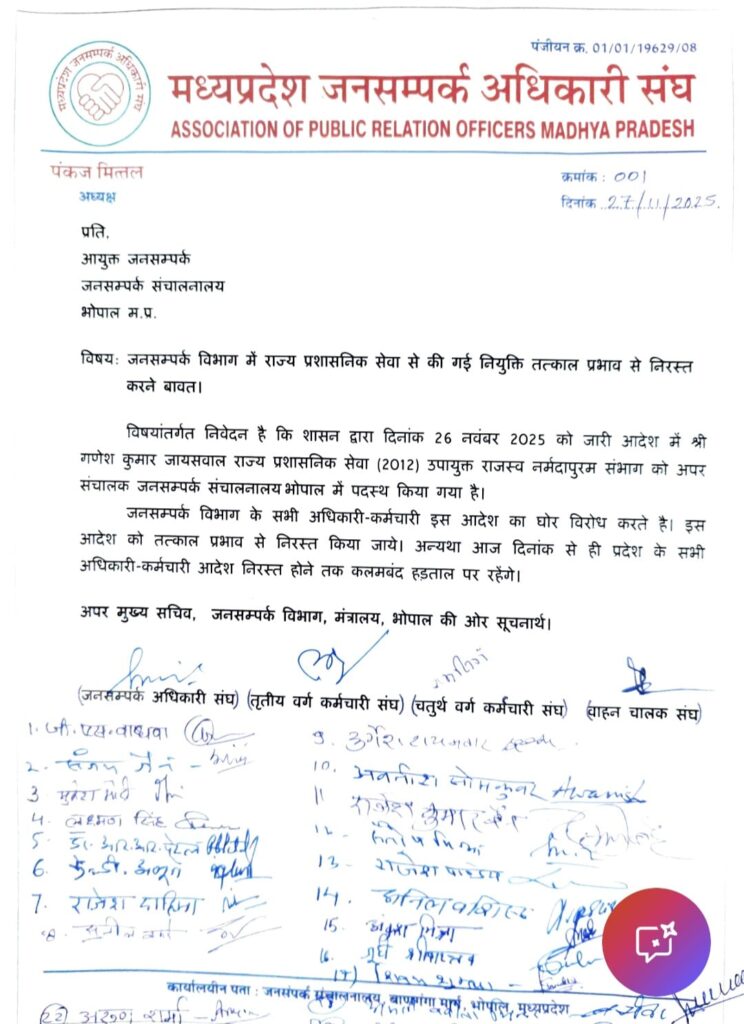 पंजीयन क्र. 01/01/19629/08
मध्यप्रदेश जनसम्पर्क अधिकारी संघ
मध्यप्रदेश जनसम्पर्क अधिकारी संघ
ASSOCIATION OF PUBLIC RELATION OFFICERS MADHYA PRADESH
पंकज मित्तल
अध्यक्ष
क्रमांक : 001
दिनांक 27/11/2025.
प्रति,
आयुक्त जनसम्पर्क
जनसम्पर्क संचालनालय
भोपाल म.प्र.
विषय: जनसम्पर्क विभाग में राज्य प्रशासनिक सेवा से की गई नियुक्ति तत्काल प्रभाव से निरस्त
करने बावत।
विषयांतर्गत निवेदन है कि शासन द्वारा दिनांक 26 नवंबर 2025 को जारी आदेश में श्री
गणेश कुमार जायसवाल राज्य प्रशासनिक सेवा (2012) उपायुक्त राजस्व नर्मदापुरम संभाग को अपर
संचालक जनसम्पर्क संचालनालय भोपाल में पदस्थ किया गया है।
जनसम्पर्क विभाग के सभी अधिकारी-कर्मचारी इस आदेश का घोर विरोध करते है। इस
आदेश को तत्काल प्रभाव से निरस्त किया जाये। अन्यथा आज दिनांक से ही प्रदेश के सभी
अधिकारी-कर्मचारी आदेश निरस्त होने तक कलमबंद हड़ताल पर रहेंगे।
अपर मुख्य सचिव, जनसम्पर्क विभाग, मंत्रालय, भोपाल की ओर सूचनार्थ।
(जनसम्पर्क अधिकारी संघ) (तृतीय वर्ग कर्मचारी संघ) (चतुर्थ वर्ग कर्मचारी संघ) (वाहन चालक संघ)
1. जी. एस. वाधवा
2. संजय जैन
3
4. लक्ष्मण सिंह
5 डॉ. आर. आर. पटेल
6.
7. राजेश दाहिमा
8. सुनील वर्मा
9.
10. अवनीश सोमकुवर
11 राजेश कुमार
12
13 राजेश पाण्डेय
14. अनिल वशिष्ठ
15. अंकुश मिश्रा
16.
17)
कार्यालयीन पता : जनसंपर्क संचालनालय, बाणगंगा मार्ग, भोपाल, मध्यप्रदेश
(22) अरुण शर्मा